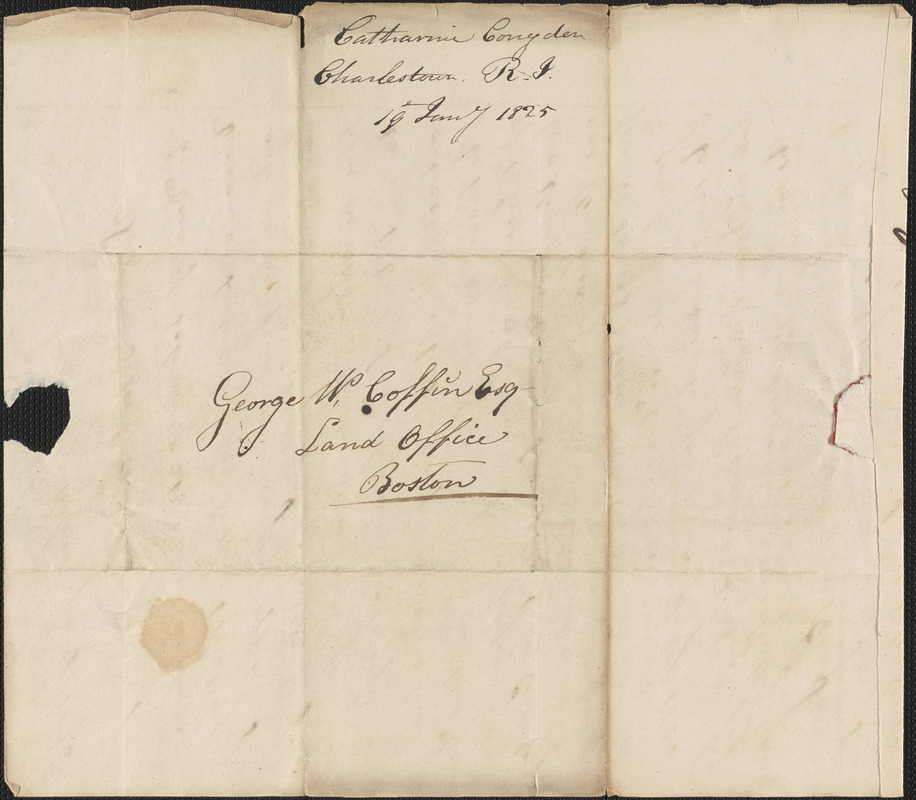 Catharine Congden
Charlestown. R. I.
19 Jany 1825
George W. Coffin Esq
Land Office
Boston